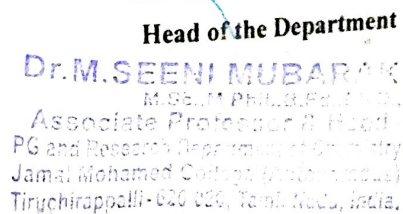 Head of the Department
Dr.M.SEENI MUBARAK
M.Sc., M.PHIL.,B.Ed.,
Associate Professor & Head
PG and Research Department of Chemistry
Jamal Mohamed College (Autonomous)
Tiruchirappalli - 620 020, Tamil Nadu, India.